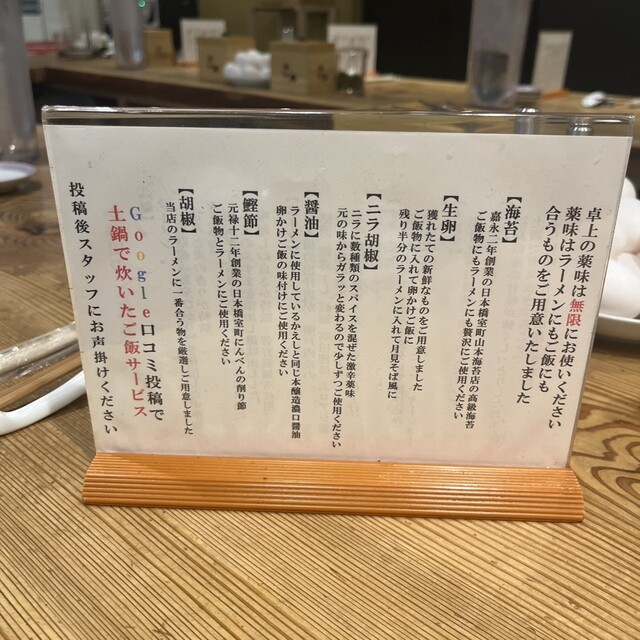 卓上の薬味は無限にお使いください
薬味はラーメンにもご飯にも
合うものをご用意いたしました
【海苔】
嘉永二年創業の日本橋室町山本海苔店の高級海苔
ご飯物にもラーメンにも贅沢にご使用ください
【生卵】
獲れたての新鮮なものをご用意しました
ご飯物に入れて卵かけご飯に
残り半分のラーメンに入れて月見そば風に
【ニラ胡椒】
ニラに数種類のスパイスを混ぜた激辛薬味
元の味からガラッと変わるので少しずつご使用ください
【醤油】
ラーメンに使用しているかえしと同じ本醸造濃口醤油
卵かけご飯の味付けにご使用ください
【鰹節】
元禄十二年創業の日本橋室町にんべんの削り節
ご飯物とラーメンにご使用ください
【胡椒】
当店のラーメンに一番合う物を厳選しご用意しました
Google口コミ投稿で
土鍋で炊いたご飯サービス
投稿後スタッフにお声掛けください